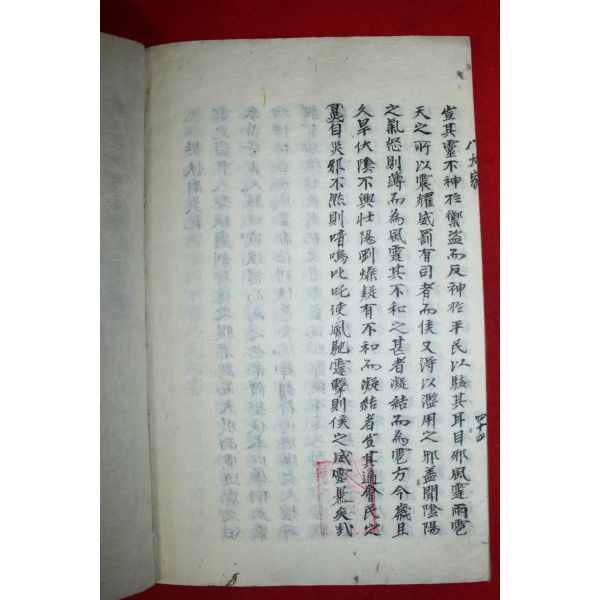 八大家
四十四
豈其靈不神於禦盜而反神於平民以駭其耳目邪風霆雨雹
天之所以震耀威罰有司者而侯又得以濫用之邪盖聞陰陽
之氣怒則薄而為風霆其不和之甚者凝結而為雹方今歲且
久旱伏陰不興壯陽剛燥疑有不和而凝結者豈其適會民之
自災邪不然則喑嗚叱吒使風馳霆擊則侯之威靈暴矣哉